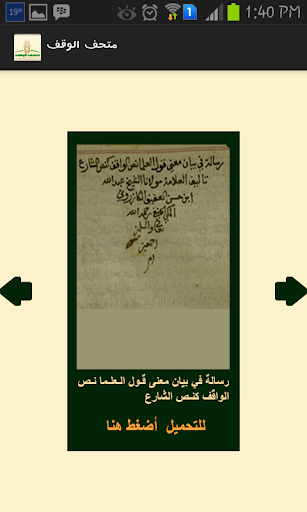 19°
1:40 PM
متحف الوقف
رسالة في بيان معنى قول العلما نص الواقف كنص الشارع
تاليف العلامة مولانا الشيخ عبدالله
ابن حسن العفيف الكازروني
المكي
رحمه الله
رسالة في بيان معنى قـول الـعـلـما نـص
الواقف كنـص الشارع
للتحميل أضغط هنا